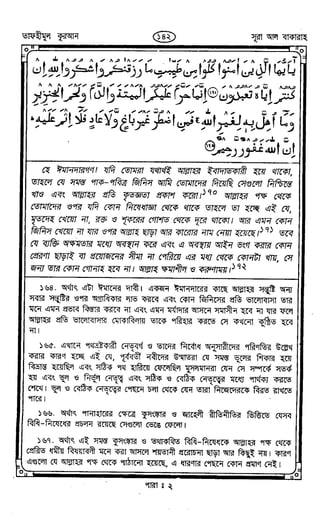 তাফহীমুল কুরআন
১৪২
সূরা আল বাকারাহ
يٰۤاَيُّهَا الَّذِيْنَ اٰمَنُوْا كُلُوْا مِنْ طَيِّبٰتِ مَا رَزَقْنٰكُمْ وَاشْكُرُوْا لِلّٰهِ اِنْ
كُنْتُمْ اِيَّاهُ تَعْبُدُوْنَ اِنَّمَا حَرَّمَ عَلَيْكُمُ الْمَيْتَةَ وَالدَّمَ وَلَحْمَ الْخِنْزِيْرِ
وَمَاۤ اُهِلَّ بِهٖ لِغَيْرِ اللّٰهِ فَمَنِ اضْطُرَّ غَيْرَ بَاغٍ وَّلَا عَادٍ فَلَاۤ اِثْمَ عَلَيْهِ
اِنَّ اللّٰهَ غَفُوْرٌ رَّحِيْمٌ
হে ঈমানদারগণ! যদি তোমরা যথার্থই আল্লাহর ইবাদাতকারী হয়ে থাকো,
তাহলে যে সমস্ত পাক-পবিত্র জিনিস আমি তোমাদের দিয়েছি সেগুলো নিশ্চিন্তে
খাও এবং আল্লাহর প্রতি কৃতজ্ঞতা প্রকাশ করো।১৭০ আল্লাহর পক্ষ থেকে
তোমাদের ওপর যদি কোন নিষেধাজ্ঞা থেকে থাকে তাহলে তা হচ্ছে এই যে,
মৃতদেহ খেয়ো না, রক্ত ও শূকরের গোশত থেকে দূরে থাকো। আর এমন কোন
জিনিস খেয়ো না যার ওপর আল্লাহ ছাড়া আর কারোর নাম নেয়া হয়েছে।১৭১ তবে
যে ব্যক্তি অক্ষমতার মধ্যে অবস্থান করে এবং এ অবস্থায় আইন ভংগ করার কোন
প্রেরণা ছাড়াই বা প্রয়োজনের সীমা না পেরিয়ে এর মধ্য থেকে কোনটা খায়, সে
জন্য তার কোন গোনাহ হবে না। আল্লাহ ক্ষমাশীল ও করুণাময়।১৭২
১৬৪. অর্থাৎ এটা ঈমানের দাবী। একজন ঈমানদারের কাছে আল্লাহর সন্তুষ্টি অন্য
সবার সন্তুষ্টির ওপর অগ্রাধিকার লাভ করবে এবং কোন জিনিসের প্রতি ভালোবাসা তার
মনে এমন প্রভাব বিস্তার করবে না এবং এমন মর্যাদার আসনে সমাসীন হবে না যার ফলে
আল্লাহর প্রতি ভালোবাসার মোকাবিলায় তাকে পরিহার করতে সে কখনো কুণ্ঠিত হবে
না।
১৬৫. এখানে পথভ্রষ্টকারী নেতৃবৃন্দ ও তাদের নির্বোধ অনুসারীদের পরিণতির উল্লেখ
করার কারণ হচ্ছে এই যে, পূর্ববর্তী নবীদের উম্মাতরা যে সমস্ত ভুলের শিকার হয়ে
বিভ্রান্ত হয়েছিল এবং সঠিক পথ হারিয়ে ফেলেছিল মুসলমানরা যেন সে সম্পর্কে সতর্ক
হয় এবং ভুল ও নির্ভুল নেতৃত্ব এবং সঠিক ও বেঠিক নেতৃত্বের মধ্যে পার্থক্য করতে
শেখে। ভুল ও বেঠিক নেতৃত্বের পেছনে চলা থেকে যেন তারা নিজেদেরকে বিরত রাখতে
পারে।
১৬৬. অর্থাৎ পানাহারের ক্ষেত্রে কুসংস্কার ও জাহেলী রীতিনীতির ভিত্তিতে যেসব
বিধি-নিষেধের প্রচলন রয়েছে সেগুলো ভেঙে ফেলো।
১৬৭. অর্থাৎ এই সমস্ত কুসংস্কার ও তথাকথিত বিধি-নিষেধকে আল্লাহর পক্ষ থেকে
প্রেরিত ধর্মীয় বিষয়াবলী মনে করা আসলে শয়তানী প্ররোচনা ছাড়া আর কিছুই নয়। কারণ
এগুলো যে আল্লাহর পক্ষ থেকে পাঠানো হয়েছে, এ ধারণার পেছনে কোন প্রমাণ নেই।
পারা : ২